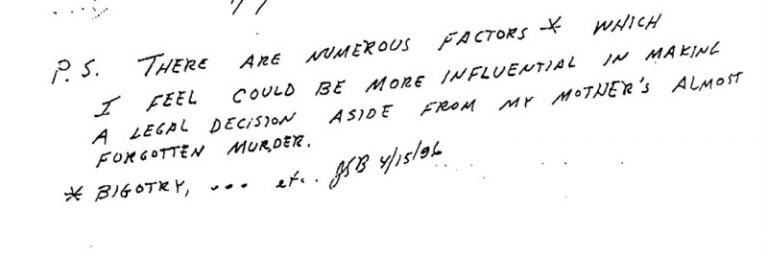 P.S. THERE ARE NUMEROUS FACTORS * WHICH
I FEEL COULD BE MORE INFLUENTIAL IN MAKING
A LEGAL DECISION ASIDE FROM MY MOTHER'S ALMOST
FORGOTTEN MURDER.
* BIGOTRY, ... etc. JSB 4/15/96